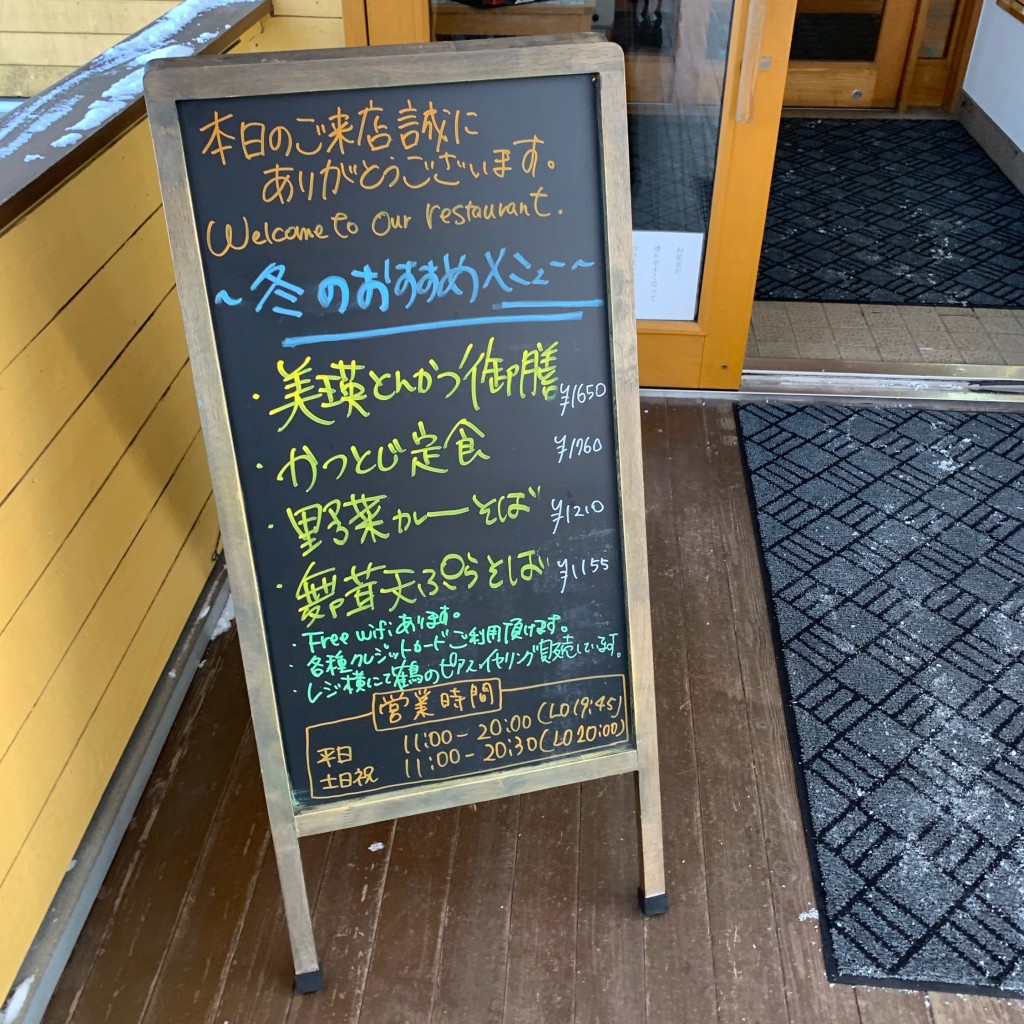 本日のご来店誠に
ありがとうございます。
Welcome to our restaurant.
～冬のおすすめメニュー～
・美瑛とんかつ御膳 ¥1650
・かつとじ定食 ¥1760
・野菜カレーそば ¥1210
・舞茸天ぷらそば ¥1155
・Free wifiあります。
・各種クレジットカードご利用頂けます。
・レジ横にて鶴のピアス、イヤリング販売しています。
営業時間
平日 11:00-20:00(LO19:45)
土日祝 11:00-20:30(LO20:00)